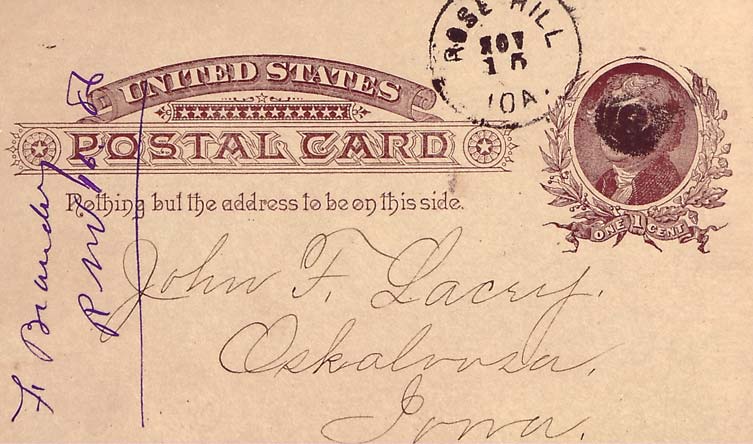 ROSE HILL
NOV
15
IOA.
UNITED STATES
POSTAL CARD
Nothing but the address to be on this side.
ONE 1 CENT
John F. Lacey.
Oskaloosa.
Iowa.
86